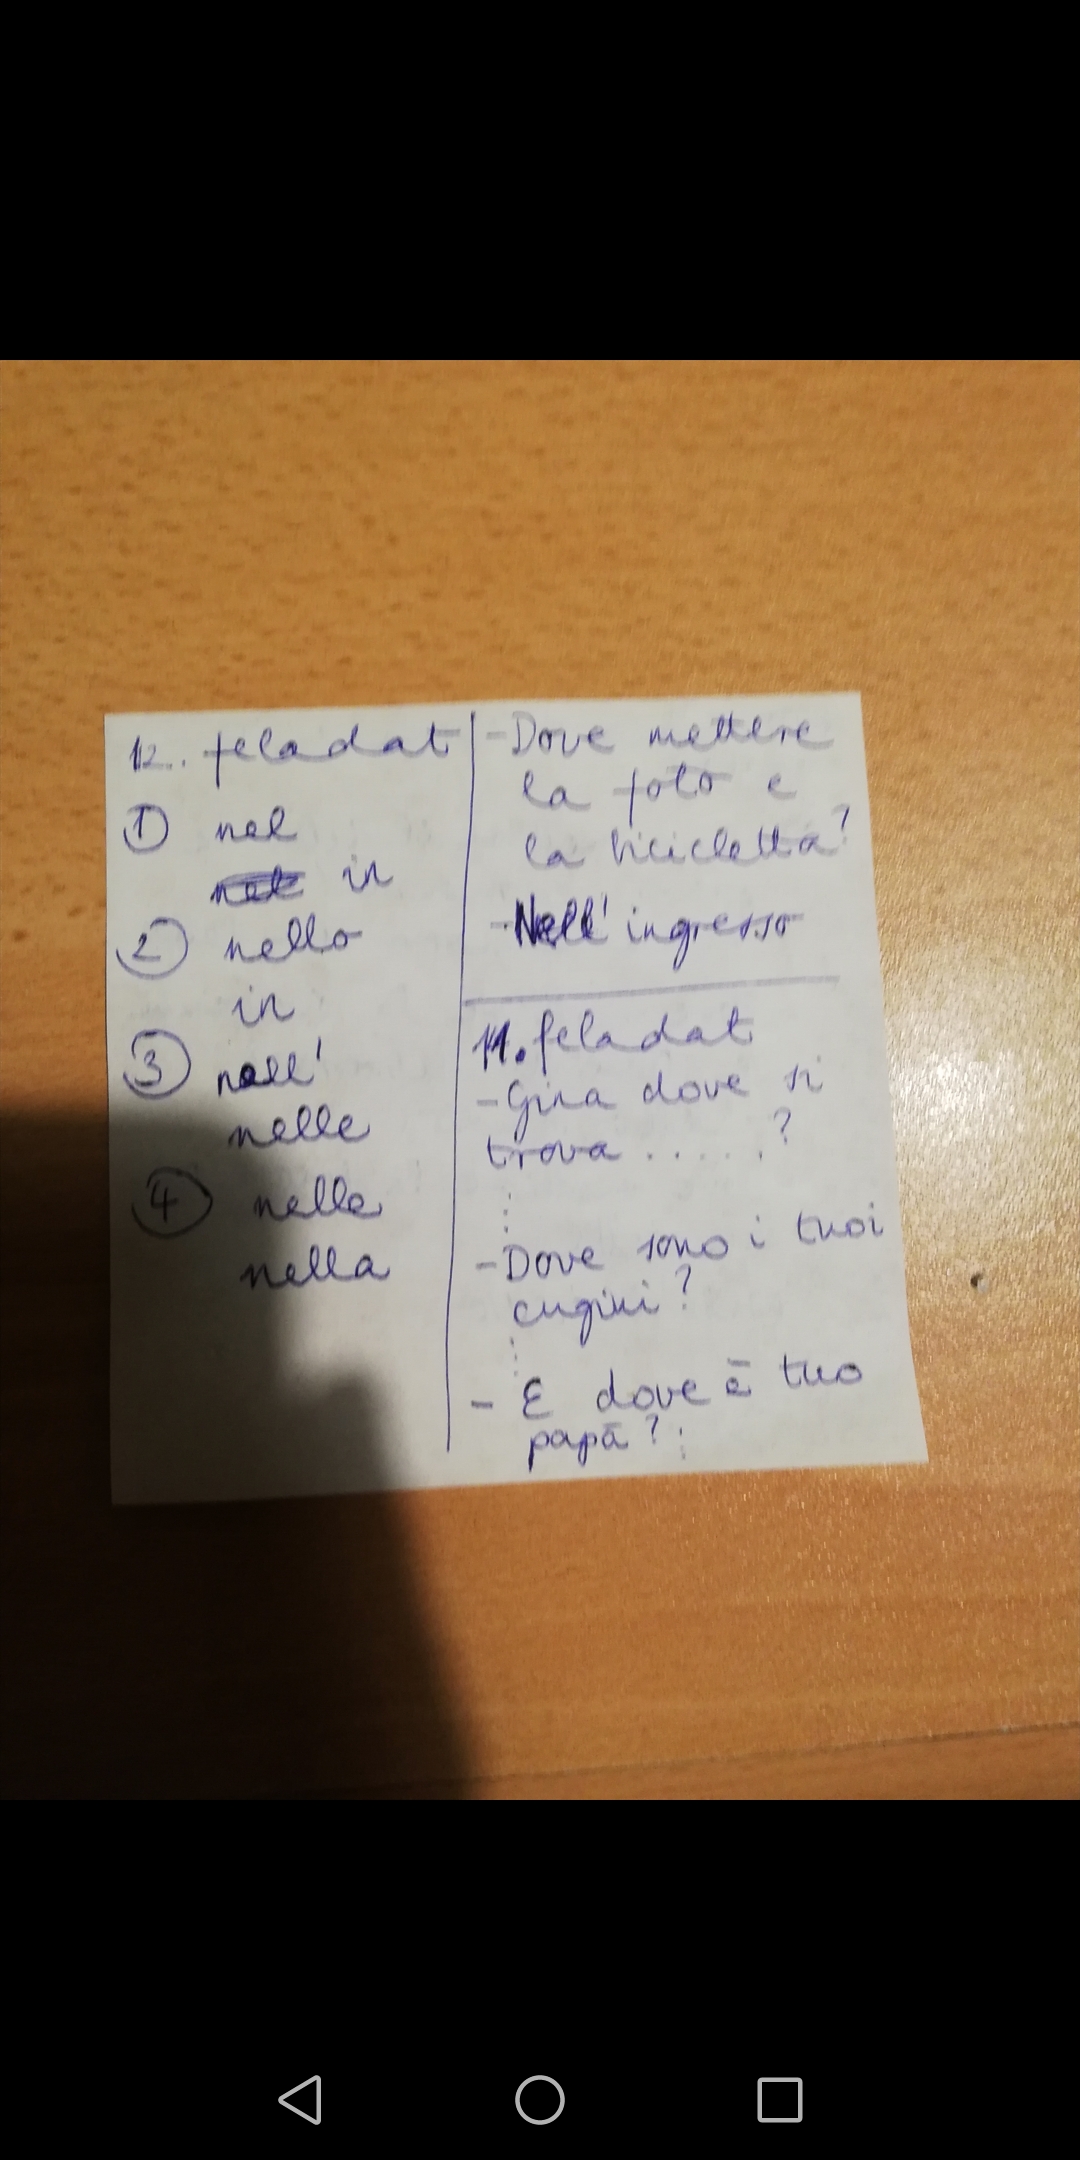 12. feladat
① nel
in
② nello
in
③ nell'
nelle
④ nelle
nella
- Dove mettere
la foto e
la bicicletta?
- Nell' ingresso
11. feladat
- Gina dove si
trova ......?
⋮
- Dove sono i tuoi
cugini?
⋮
- E dove è tuo
papà? ⋮